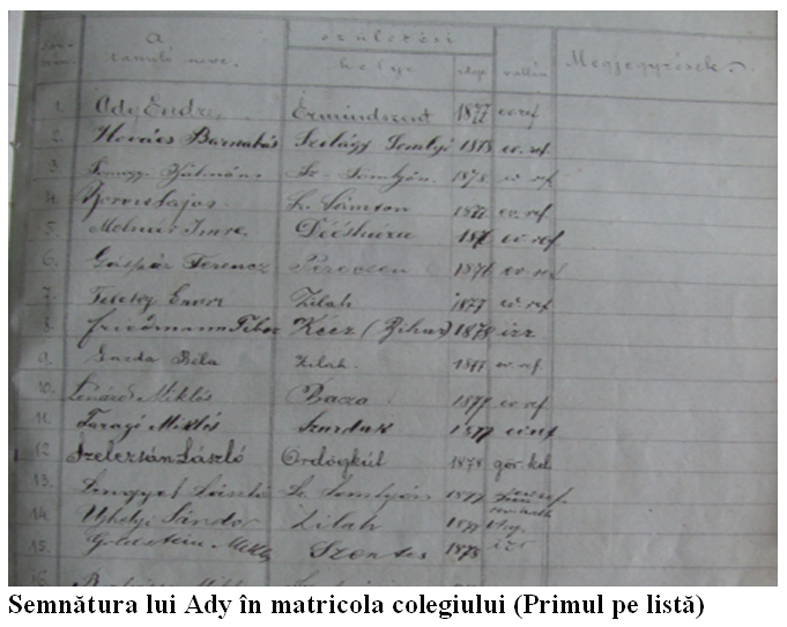 A születési
tanuló neve. helye ideje vallása Megjegyzések.
1. Ady Endre Érmindszent 1877 ev. ref
2. Kovács Barnabás Szilágy Somlyó 1878 ev. ref.
3. Kálmán Sz-Somlyón. 1878 ev ref
4. Lajos. 187 ev. ref
5. Molnár Imre. Désháza 187 ev ref
6. Gáspár Ferencz Perecsen 1876 ev. ref
7. Zilah 1877 ev. ref
8. Friedmann Tibor Kécz (Bihar) 1878 izr
9. Gazda Béla Zilah. 1877 ev. ref.
10. Lénárd Miklós Baca 1877 ev ref.
11. Faragó Miklós Szurduk 1877 ev ref
12 László Ördögkút 1878 gör. kel
13. Lengyel László Somlyón 1877
14. Ujhelyi Sándor Zilah 1877
15. Goldstein Szentes 1878 izr
16.
Semnătura lui Ady în matricola colegiului (Primul pe listă)